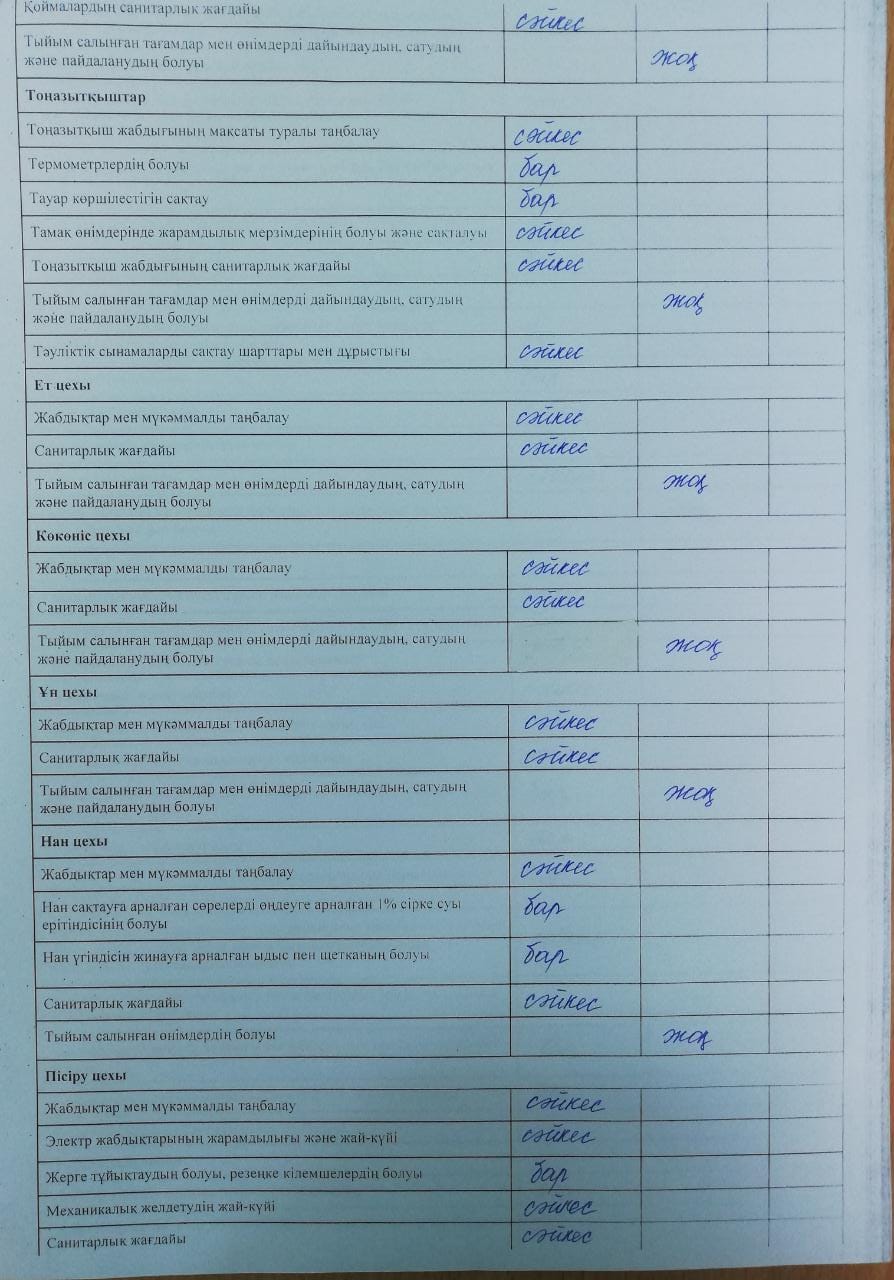 Қоймалардың санитарлық жағдайы сәйкес
Тыйым салынған тағамдар мен өнімдерді дайындаудың, сатудың
және пайдаланудың болуы жоқ
Тоңазытқыштар
Тоңазытқыш жабдығының мақсаты туралы таңбалау сәйкес
Термометрлердің болуы бар
Тауар көршілестігін сақтау бар
Тамақ өнімдерінде жарамдылық мерзімдерінің болуы және сақталуы сәйкес
Тоңазытқыш жабдығының санитарлық жағдайы сәйкес
Тыйым салынған тағамдар мен өнімдерді дайындаудың, сатудың
және пайдаланудың болуы жоқ
Тәуліктік сынамаларды сақтау шарттары мен дұрыстығы сәйкес
Ет цехы
Жабдықтар мен мүкәммалды таңбалау сәйкес
Санитарлық жағдайы сәйкес
Тыйым салынған тағамдар мен өнімдерді дайындаудың, сатудың
және пайдаланудың болуы жоқ
Көкөніс цехы
Жабдықтар мен мүкәммалды таңбалау сәйкес
Санитарлық жағдайы сәйкес
Тыйым салынған тағамдар мен өнімдерді дайындаудың, сатудың
және пайдаланудың болуы жоқ
Ұн цехы
Жабдықтар мен мүкәммалды таңбалау сәйкес
Санитарлық жағдайы сәйкес
Тыйым салынған тағамдар мен өнімдерді дайындаудың, сатудың
және пайдаланудың болуы жоқ
Нан цехы
Жабдықтар мен мүкәммалды таңбалау сәйкес
Нан сақтауға арналған сөрелерді өңдеуге арналған 1% сірке суы
ерітіндісінің болуы бар
Нан үгіндісін жинауға арналған ыдыс пен щетканың болуы бар
Санитарлық жағдайы сәйкес
Тыйым салынған өнімдердің болуы жоқ
Пісіру цехы
Жабдықтар мен мүкәммалды таңбалау сәйкес
Электр жабдықтарының жарамдылығы және жай-күйі сәйкес
Жерге тұйықтаудың болуы, резеңке кілемшелердің болуы бар
Механикалық желдетудің жай-күйі сәйкес
Санитарлық жағдайы сәйкес